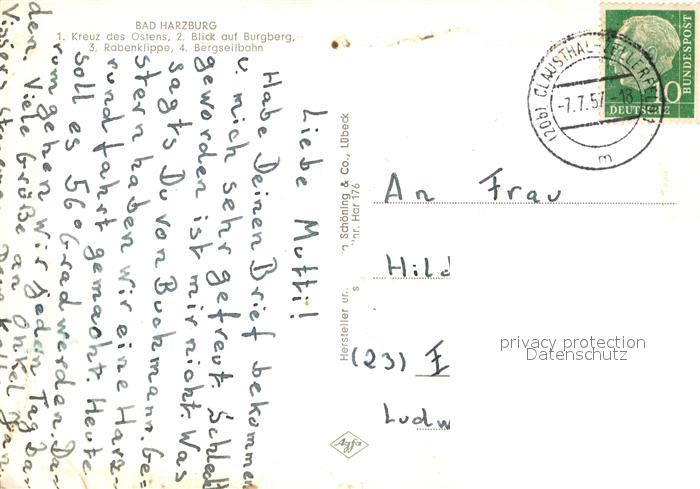 BAD HARZBURG
1. Kreuz des Ostens, 2. Blick auf Burgberg,
3. Rabenklippe, 4. Bergseilbahn
Liebe Mutti!
Habe Deinen Brief bekommen
u. mich sehr gefreut. Schlecht
geworden ist mir nicht. Was
sagts Du von Buchmann. Ge=
stern haben wir eine Harz-
rundfahrt gemacht. Heute
soll es 56 Grad werden. Da-
rum gehen wir jeden Tag ba-
den. Viele Grüße an Onkel
Hersteller ur.
Schöning & Co., Lübeck
nr. Har 176
s
Agfa
(20b) CLAUSTHAL-ZELLERFELD
-7.7.57.-18
m
10
DEUTSCHE
BUNDESPOST
An Frau
Hild
(23)
Ludw
privacy protection
Datenschutz